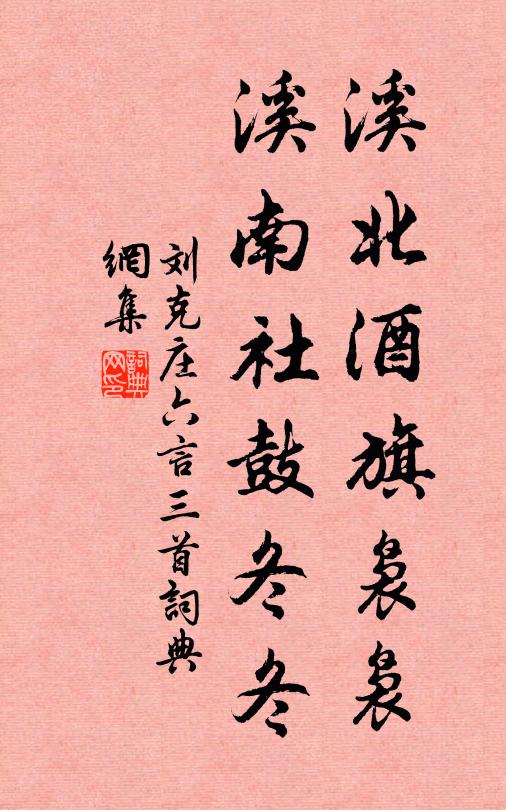 溪北酒旗裊裊
溪南社鼓冬冬
刘克庄六言三首詞典
網集
詞典網印